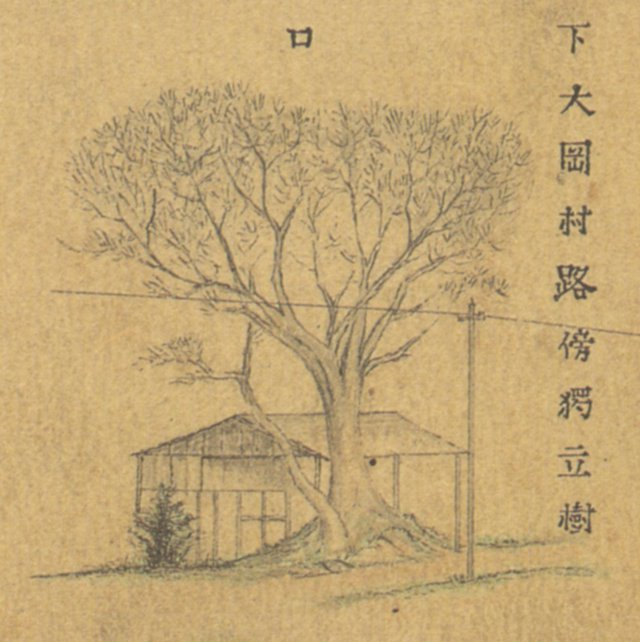 下大岡村路傍獨立樹
口